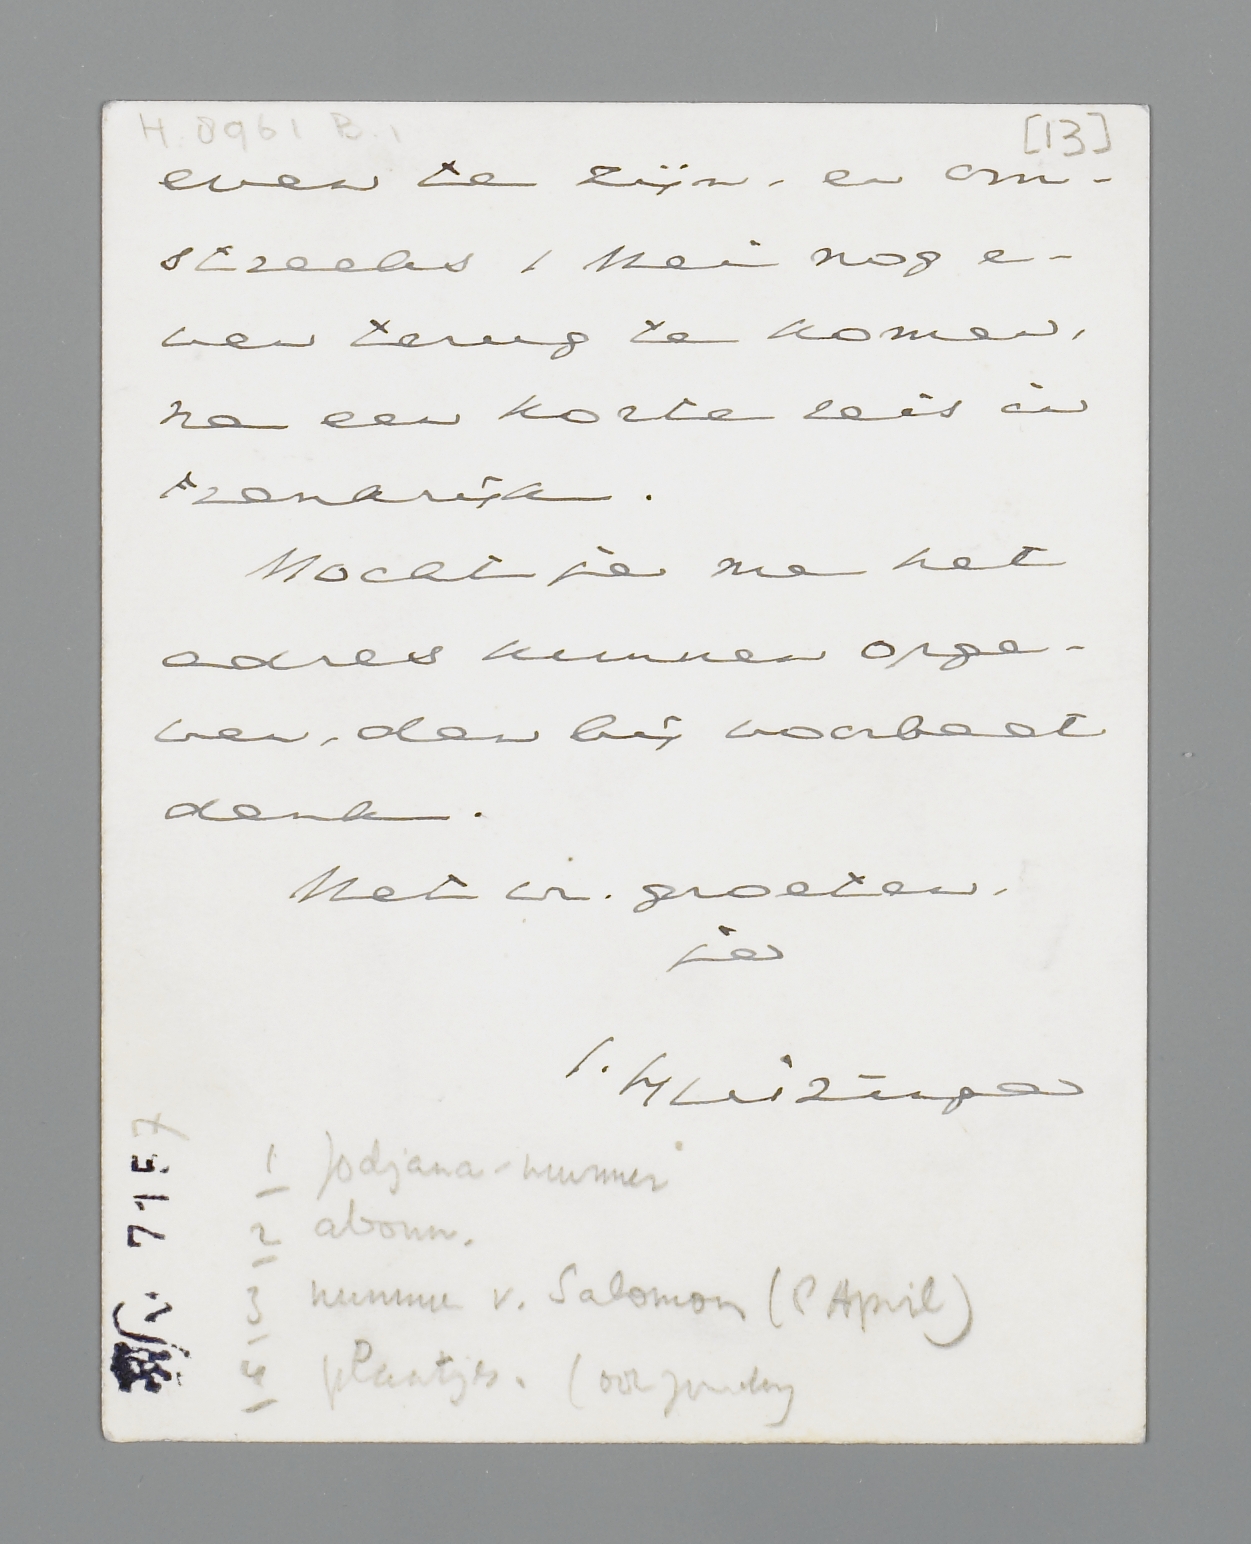 H.8961 B.1
[13]
even te zijn, en om-
streeks 1 Mei nog e-
ven terug te komen,
na een korte reis in
Frankrijk.
Mocht je me het
adres kunnen opge-
ven, dan bij voorbaat
dank.
Met vr. groeten,
je
J. Huizinga
1 Jodjana-nummer
2 abonn.
3 nummer v. Salomon (? April)
4 plaatjes. (
7157